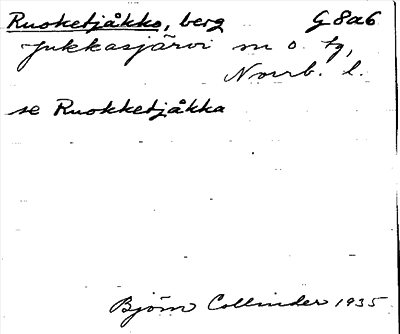 Ruoketjåkko, berg G 8a6
Jukkasjärvi sn o. tg,
Norrb. l.
se Ruokketjåkka
Björn Collinder 1935